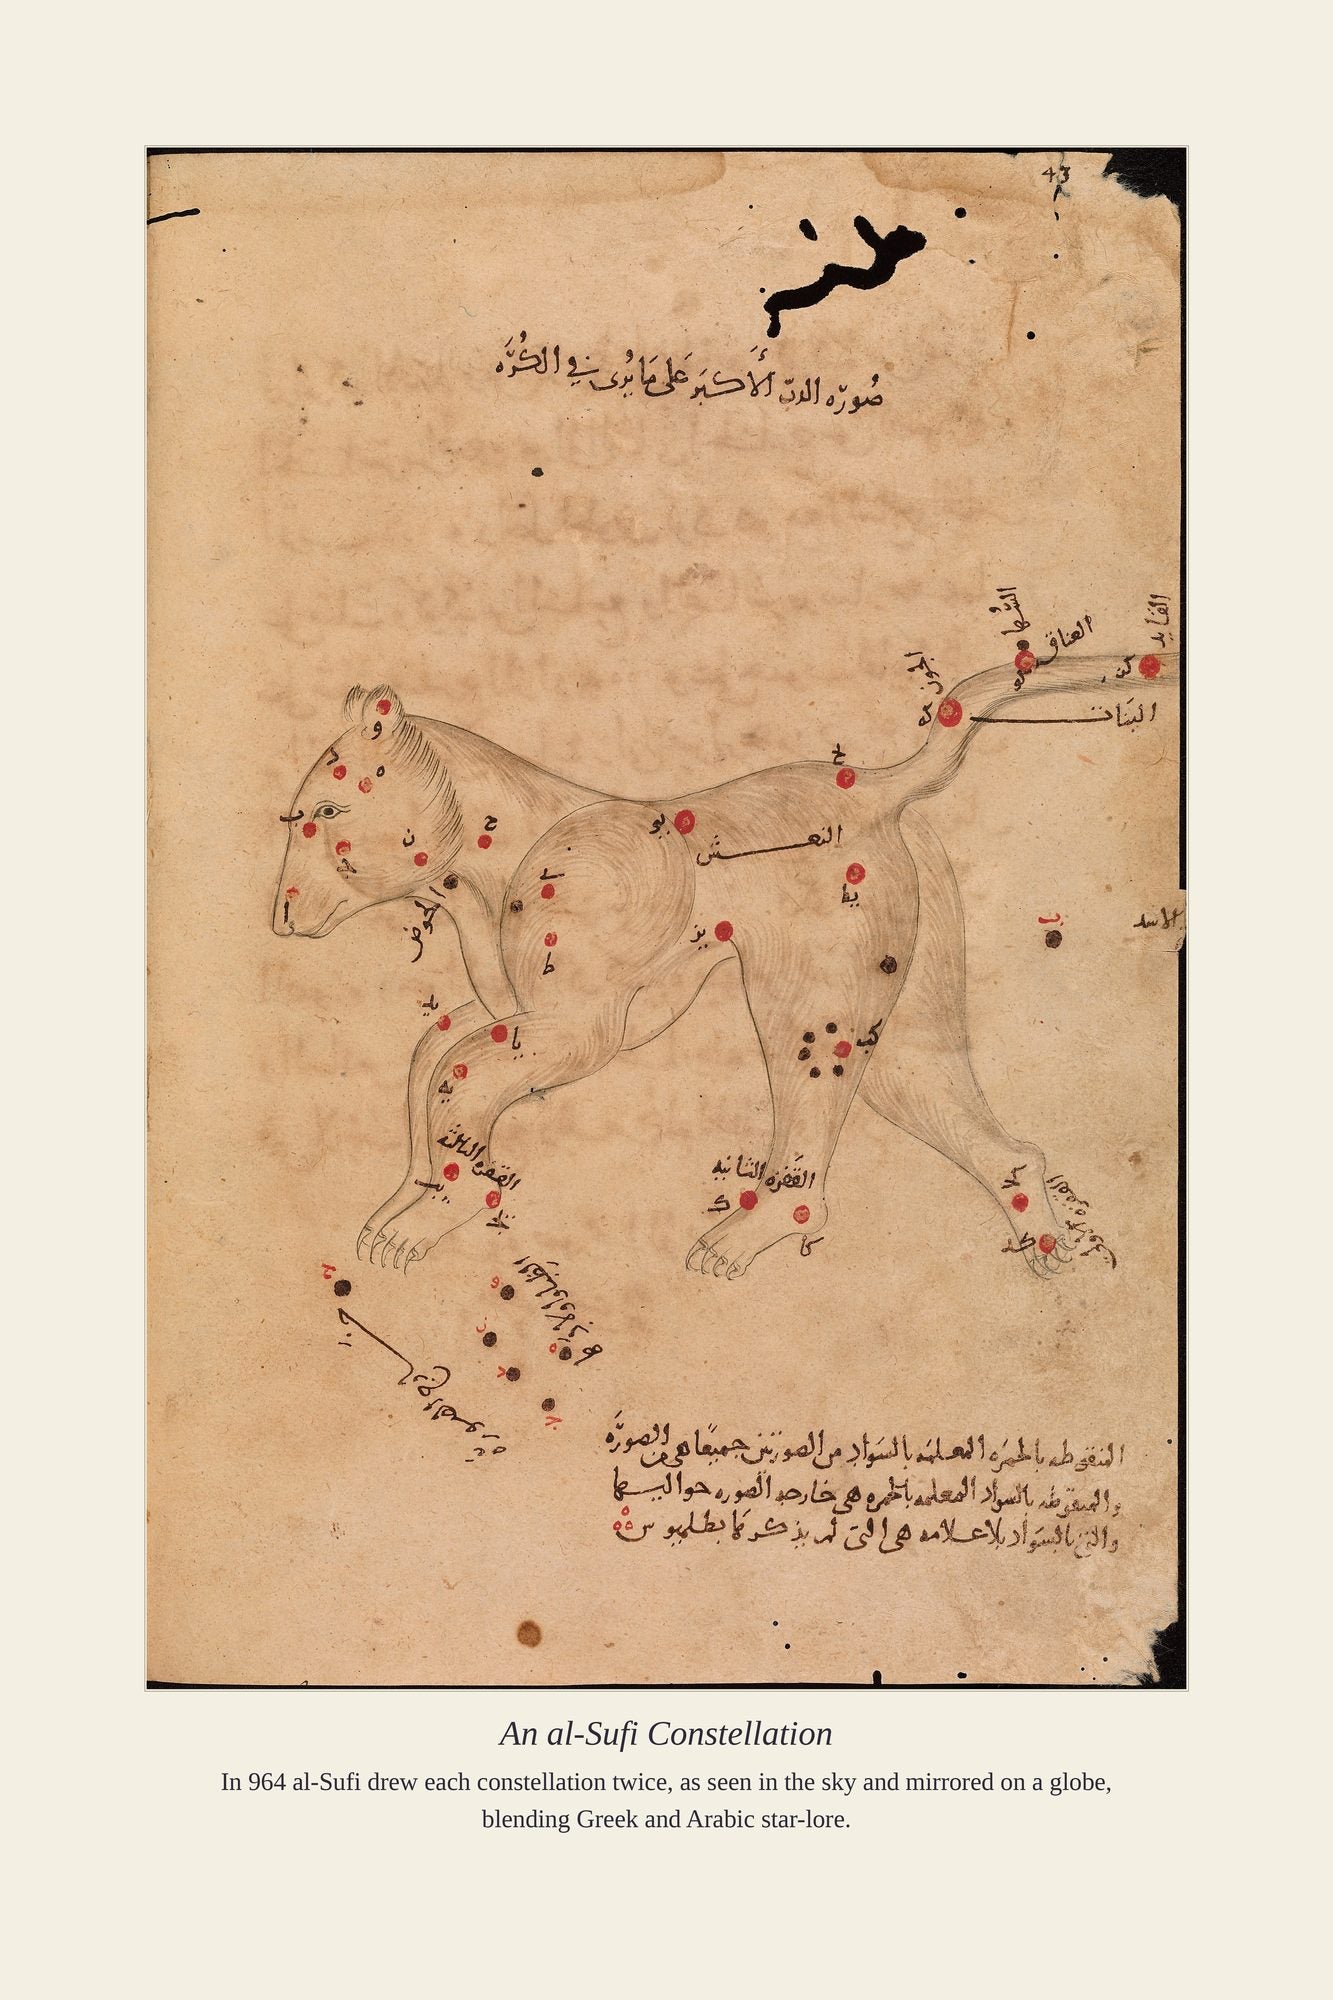 43
صُورَه الدبّ الأَكبَر عَلى مَا يُرى في الكُرَّه
السُّها
العناق
القايد
الجون
كه
كو
كز
البنات
و
د
ه
ب
ج
ا
ز
ح
يح
يو
النعش
يط
يز
الحوض
ط
ي
يا
يد
يه
القفزه الثالثه
يب
يج
القفزه الثانيه
ك
كا
كب
كج
كد
القفزه الاولى
الاسد
المنقوطه بالحمرَه المعلمَه بالسَواد من الصورتين جميعًا هي من الصورَه
والمنقوطه بالسواد المعلمه بالحمره هي خارجه الصوره حواليها
والتي بالسَواد بلا علامه هي التي لم يذكرها بطلميوس
An al-Sufi Constellation
In 964 al-Sufi drew each constellation twice, as seen in the sky and mirrored on a globe,
blending Greek and Arabic star-lore.